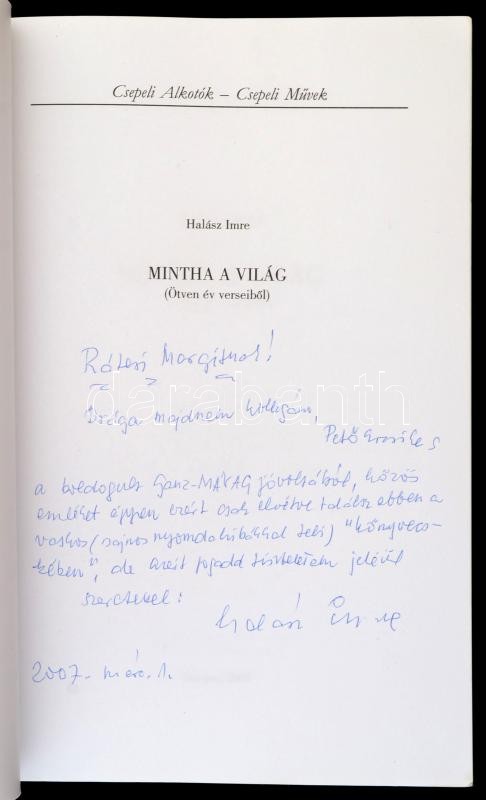 Csepeli Alkotók – Csepeli Művek
Halász Imre
MINTHA A VILÁG
(Ötven év verseiből)
Rátesi Margitnak!
Drága majdnem kollegám,
Pető
a boldogult Ganz-MÁVAG jóvoltából, közös
emléket éppen ezért csak elvétve találsz ebben a
vaskos (sajnos nyomdahibákkal teli) "könyvecs-
kében", de azért fogadd tiszteletem jeléül
szeretettel:
Halász Imre
2007. márc. 1.
darabanth